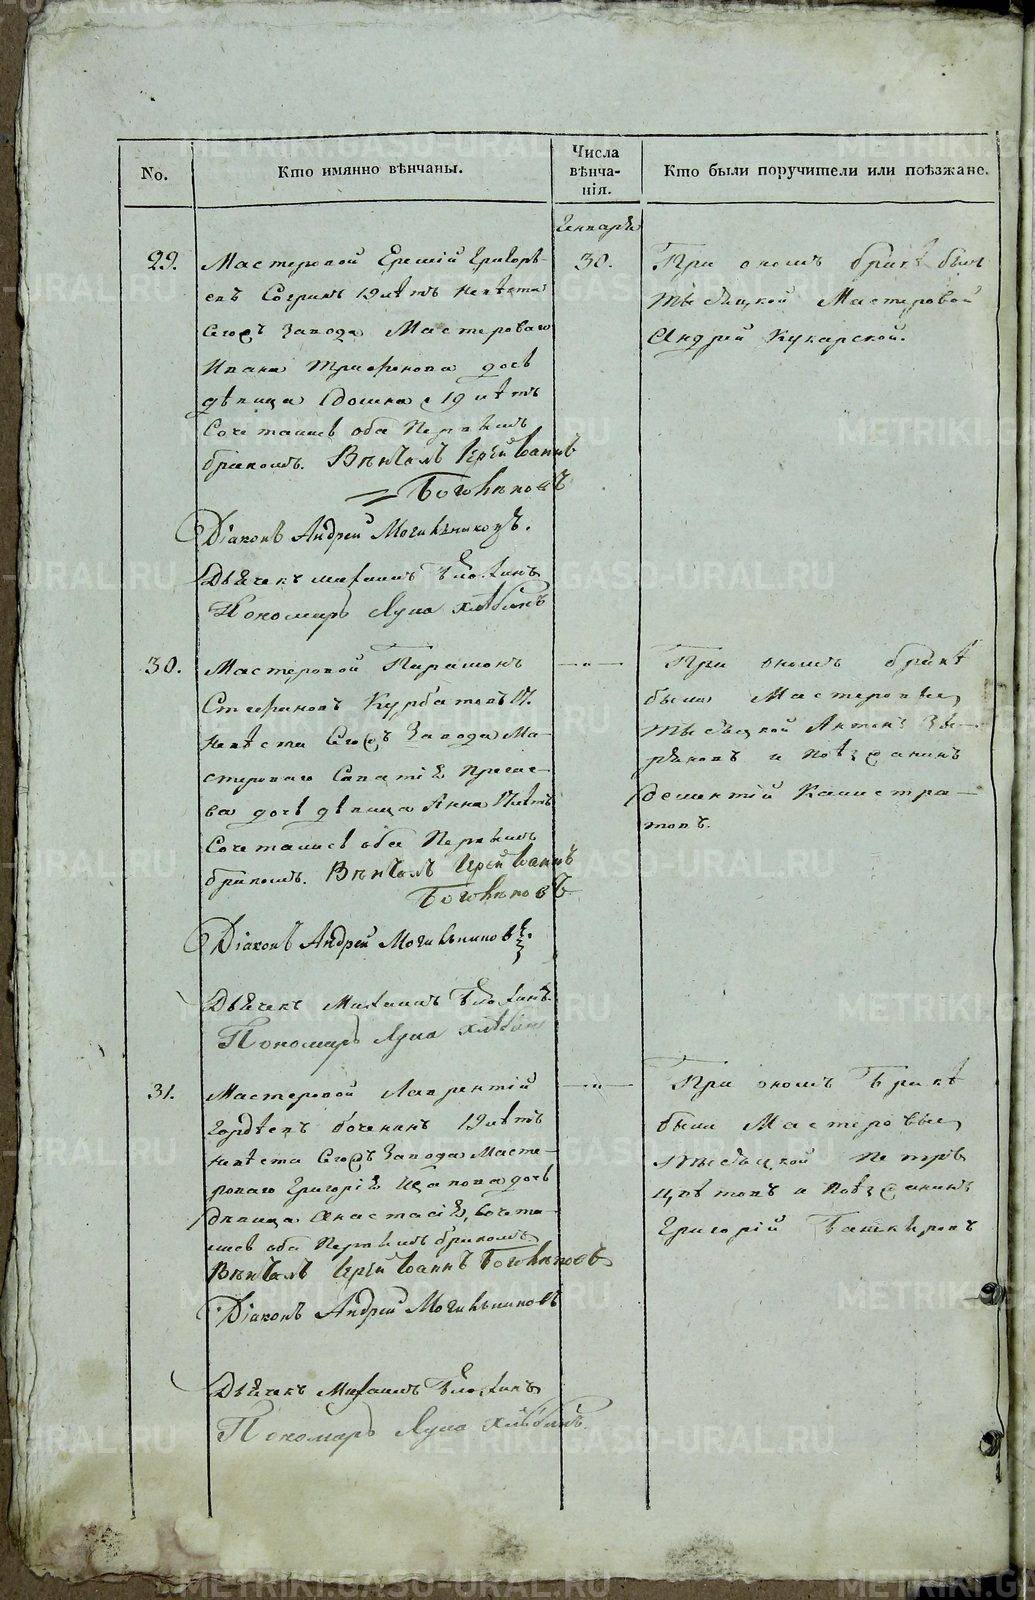 No.
Кто имянно вѣнчаны.
Числа
вѣнча-
нія.
Кто были поручители или поѣзжане.
Генваря
29.
Мастеровой Еремѣй Григорь-
евъ Согринъ 19 лѣтъ невѣста
Сегожъ Завода Мастероваго
Ивана Трифонова дочь
дѣвица Евдокия 19 лѣтъ
Сочетались оба первымъ
бракомъ. Вѣнчалъ Іерей Іоаннъ
Боголѣповъ
Діаконъ Андрей Могильниковъ.
Дьячекъ Михаилъ
Пономарь Лука Хлѣбинъ
30.
При ономъ бракѣ былъ
тысяцкой Мастеровой
Андрей Кукарской.
30.
Мастеровой Парамонъ
Стефановъ Курбатовъ
невѣста Сегожъ Завода Ма-
стероваго
дочь дѣвица Анна лѣтъ
Сочетались оба первымъ
бракомъ. Вѣнчалъ Іерей Іоаннъ
Боголѣповъ
Діаконъ Андрей Могильниковъ.
Дьячекъ Михаилъ
Пономарь Лука Хлѣбинъ
—„—
При ономъ бракѣ
были Мастеровые
тысяцкой Антонъ Зы-
ряновъ и поѣзжанинъ
Дементій Калистра-
товъ.
31.
Мастеровой Лаврентій
Гордѣевъ 19 лѣтъ
невѣста Сегожъ Завода Масте-
роваго Григорія дочь
дѣвица Анастасія, сочета-
лись оба первымъ бракомъ.
Вѣнчалъ Іерей Іоаннъ Боголѣповъ
Діаконъ Андрей Могильниковъ
Дьячекъ Михаилъ
Пономарь Лука Хлѣбинъ
—„—
При ономъ бракѣ
были Мастеровые
тысяцкой Петръ
Цвѣтовъ и поѣзжанинъ
Григорій Башкировъ
METRIKI.GASO-URAL.RU